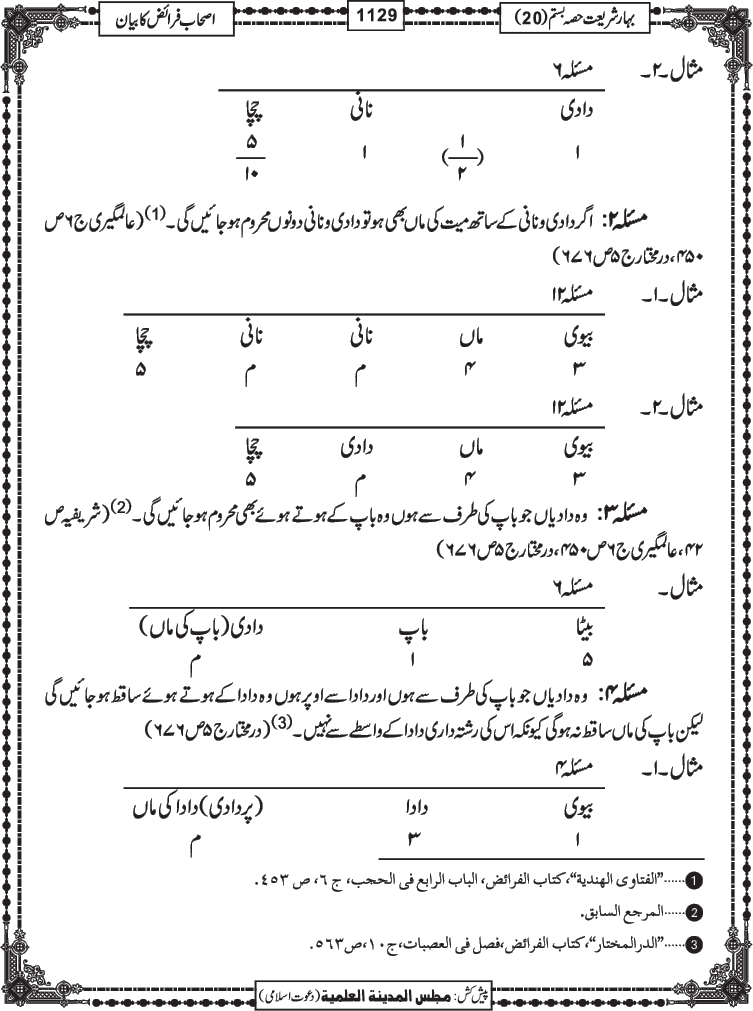 بہارِ شریعت حصہ بستم (20) 1129 اصحاب فرائض کا بیان
مثال۔۲۔ مسئلہ ۶
دادی نانی چچا
۱ (۱/۲) ۱ ۵/۱۰
مسئلہ ۲: اگر دادی و نانی کے ساتھ میت کی ماں بھی ہو تو دادی و نانی دونوں محروم ہو جائیں گی۔(1) (عالمگیری ج۶ ص
۴۵۰، درمختار ج۵ ص۶۷۶)
مثال۔۱۔ مسئلہ ۱۲
بیوی ماں نانی نانی چچا
۳ ۴ م م ۵
مثال۔۲۔ مسئلہ ۱۲
بیوی ماں دادی چچا
۳ ۴ م ۵
مسئلہ ۳: وہ دادیاں جو باپ کی طرف سے ہوں وہ باپ کے ہوتے ہوئے بھی محروم ہو جائیں گی۔(2) (شریفیہ ص
۴۲، عالمگیری ج۶ ص۴۵۰، درمختار ج۵ ص۶۷۶)
مثال۔ مسئلہ ۶
بیٹا باپ دادی (باپ کی ماں)
۵ ۱ م
مسئلہ ۴: وہ دادیاں جو باپ کی طرف سے ہوں اور دادا سے اوپر ہوں وہ دادا کے ہوتے ہوئے ساقط ہو جائیں گی
لیکن باپ کی ماں ساقط نہ ہوگی کیونکہ اس کی رشتہ داری دادا کے واسطے سے نہیں۔(3) (درمختار ج۵ ص۶۷۶)
مثال۔۱۔ مسئلہ ۴
بیوی دادا (پردادی) دادا کی ماں
۱ ۳ م
1 ......"الفتاوی الهندية"، کتاب الفرائض، الباب الرابع فی الحجب، ج ۶، ص ۴۵۳.
2 ......المرجع السابق.
3 ......"الدرالمختار"، کتاب الفرائض،فصل فی العصبات،ج۱۰،ص۵۶۳.
پیش کش: مجلس المدينة العلمية (دعوت اسلامی)